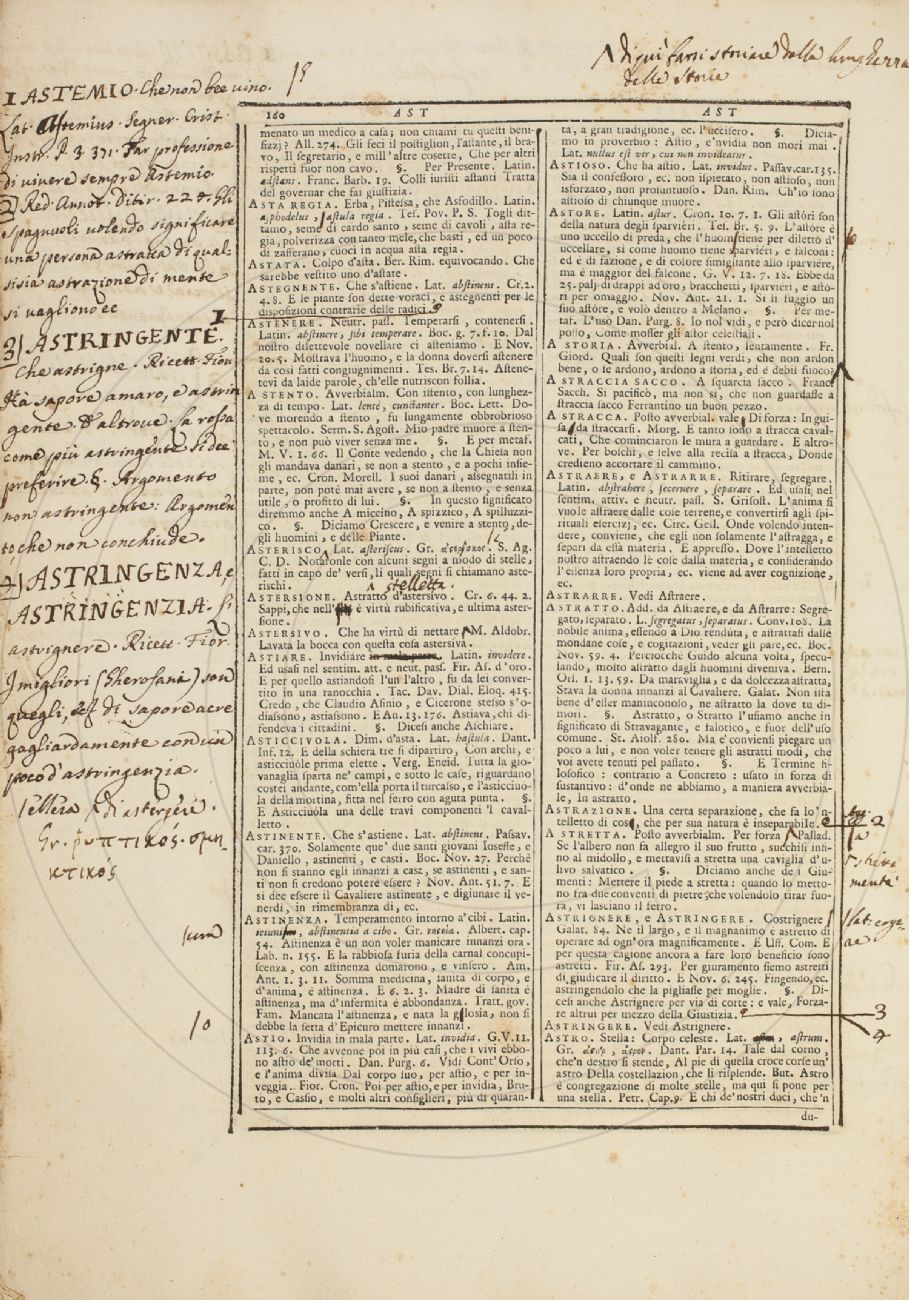 I ASTEMIO. Che non bee vino.
Lat. Astemius. Segner. Crist.
Instr. P. 3 371. Far professione
di vivere sempre Astemio.
2) Red. Annot. Ditir. 220. Gli
Spagnuoli volendo significare
una persona astratta di qual-
sisia astrazione di mente
si vagliono ec
3) ASTRINGENTE.
Che astrigne. Ricett. Fior.
Hà sapore amaro, e astrin
gente. E altrove. La rosa
come più astringente si dee
preferire. §. Argomento
non astringente: Argomen
to che non conchiude.
4) ASTRINGENZA, e
ASTRINGENZIA.
astrignere. Ricett. Fior.
I migliori (Gherofani) son
quegli, di sapore acre
gagliardamente con un
poco d'astringenzia.
di astergére.
Gr. ῥυπτικός. σμη-
κτικός
di qui farsi storiare della lungherra
delle storie
160
AST
AST
menato un medico a casa; non chiami tu questi beni-
fizzj? All. 274. Gli feci il postiglion, l'astante, il bra-
vo, Il segretario, e mill'altre cosette, Che per altri
rispetti fuor non cavo. §. Per Presente, Latin.
adstans. Franc. Barb. 19. Colli iuristi astanti Tratta
del governar che fai giustizia.
ASTA REGIA. Erba, l'istessa, che Asfodillo. Latin.
asphodelus, hastula regia. Tes. Pov. P. S. Togli dit-
tamo, seme di cardo santo, seme di cavoli, asta re-
gia, polverizza con tanto mele, che basti, ed un poco
di zafferano, cuoci in acqua asta regia.
ASTATA. Colpo d'asta. Ber. Rim. equivocando. Che
sarebbe vestito uno d'astate.
ASTEGNENTE. Che s'astiene. Lat. abstinens. Cr. 2.
4. 8. E le piante son dette voraci, e astegnenti per le
disposizioni contrarie delle radici.
ASTENERE. Neutr. pass. Temperarsi, contenersi.
Latin. abstinere, sibi temperare. Boc. g. 7. f. 10. Dal
nostro dilettevole novellare ci asteniamo. E Nov.
20. 5. Mostrava l'huomo, e la donna doversi astenere
da cosi fatti congiugnimenti. Tes. Br. 7. 14. Astene-
tevi da laide parole, ch'elle nutriscon follia.
A STENTO. Avverbialm. Con istento, con lunghez-
za di tempo. Lat. lentè, cunctanter. Boc. Lett. Do-
ve morendo a stento, fu lungamente obbrobrioso
spettacolo. Serm. S. Agost. Mio padre muore a sten-
to, e non può viver senza me. §. E per metaf.
M. V. 1. 66. Il Conte vedendo, che la Chiesa non
gli mandava danari, se non a stento, e a pochi insie-
me, ec. Cron. Morell. I suoi danari, assegnatili in
parte, non potè mai avere, se non a stento, e senza
utile, o profitto di lui. §. In questo significato
diremmo anche A miccino, A spizzico, A spilluzzi-
co. §. Diciamo Crescere, e venire a stento, de-
gli huomini, e delle Piante.
ASTERISCO. Lat. asteriscus. Gr. ἀστερίσκος. S. Ag.
C. D. Notaronle con alcuni segni a modo di stelle,
fatti in capo de' versi, li quali segni si chiamano aste-
rischi. stelletta.
ASTERSIONE. Astratto d'astersivo. Cr. 6. 44. 2.
Sappi, che nell' è virtù rubificativa, e ultima aster-
sione.
ASTERSIVO. Che ha virtù di nettare. M. Aldobr.
Lavata la bocca con questa cosa astersiva.
ASTIARE. Invidiare in mala parte. Latin. invidere.
Ed usasi nel sentim. att. e neut. pass. Fir. As. d'oro.
E per quello astiandosi l'un l'altro, fu da lei conver-
tito in una ranocchia. Tac. Dav. Dial. Eloq. 415.
Credo, che Claudio Asinio, e Cicerone stesso s'o-
diassono, astiassono. E An. 13. 176. Astiava, chi di-
fendeva i cittadini. §. Dicesi anche Aschiare.
ASTICCIVOLA. Dim. d'asta. Lat. hastula. Dant.
Inf. 12. E della schiera tre si dipartiro, Con archi, e
asticciuole prima elette. Verg. Eneid. Tutta la gio-
vanaglia sparta ne' campi, e sotto le case, riguardano
costei andante, com'ella porta il turcasso, e l'asticciuo-
la della mortina, fitta nel ferro con aguta punta. §.
E Asticciuola una delle travi componenti 'l caval-
letto.
ASTINENTE. Che s'astiene. Lat. abstinens. Passav.
car. 370. Solamente que' due santi giovani Ioseffe, e
Daniello, astinenti, e casti. Boc. Nov. 27. Perchè
non si stanno egli innanzi a casa, se astinenti, e san-
ti non si credono potere essere? Nov. Ant. 51. 7. E
si dee essere il Cavaliere astinente, e digiunare il ve-
nerdi, in rimembranza di, ec.
ASTINENZA. Temperamento intorno a'cibi. Latin.
ieiunium, abstinentia a cibo. Gr. νηστεία. Albert. cap.
54. Astinenza è un non voler manicare innanzi ora.
Lab. n. 155. E la rabbiosa furia della carnal concupi-
scenza, con astinenza domarono, e vinsero. Am.
Ant. 1. 3. 11. Somma medicina, sanità di corpo, e
d'anima, è astinenza. E 6. 2. 3. Madre di sanità è
astinenza, ma d'infermità è abbondanza. Tratt. gov.
Fam. Mancata l'astinenza, e nata la golosia, non si
debbe la setta d'Epicuro mettere innanzi.
ASTIO. Invidia in mala parte. Lat. invidia. G. V. 11.
113. 6. Che avvenne poi in più casi, che i vivi ebbo-
no astio de'morti. Dan. Purg. 6. Vidi Cont'Orso,
e l'anima divisa Dal corpo suo, per astio, e per in-
veggia. Fior. Cron. Poi per astio, e per invidia, Bru-
to, e Cassio, e molti altri consiglieri, più di quaran-
ta, a gran tradigione, ec. l'uccisero. §. Dicia-
mo in proverbio: Astio, e'nvidia non morì mai.
Lat. nullus est vir, cui non invideatur.
ASTIOSO. Che ha astio. Lat. invidus. Passav. car. 135.
Sia il confessoro, ec. non ispietato, non astioso, non
isforzato, non prosuntuoso. Dan. Rim. Ch'io sono
astioso di chiunque muore.
ASTORE. Latin. astur. Cron. 10. 7. 1. Gli astóri son
della natura degli sparvieri. Tes. Br. 5. 9. L'astóre è
uno uccello di preda, che l'huom tiene per diletto d'
uccellare, sì come huomo tiene sparvieri, e falconi:
ed è di fazione, e di colore simigliante allo sparviere,
ma è maggior del falcone. G. V. 12. 7. 18. Ebbe da
25. palj di drappi ad oro, bracchetti, sparvieri, e asto-
ri per omaggio. Nov. Ant. 21. 1. Sì li fuggio un
suo astóre, e volò dentro a Melano. §. Per me-
taf. L'uso Dan. Purg. 8. Io nol vidi, e però dicer nol
posso, Come mosser gli astor celestiali.
A STORIA. Avverbial. A stento, lentamente. Fr.
Giord. Quali son questi legni verdi, che non ardon
bene, o se ardono, ardono a storia, ed è debil fuoco?
A STRACCIA SACCO. A squarcia sacco. Franc.
Sacch. Sì pacificò, ma non sì, che non guardasse a
straccia sacco Ferrantino un buon pezzo.
A STRACCA. Posto avverbial. vale Di forza: In gui-
sa da straccarsi. Morg. E tanto sono a stracca caval-
cati, Che cominciaron le mura a guardare. E altro-
ve. Per boschi, e selve alla recisa a stracca, Donde
credieno accortare il cammino.
ASTRAERE, e ASTRARRE. Ritirare, segregare.
Latin. abstrahere, secernere, separare. Ed usasi nel
sentim. attiv. e neutr. pass. S. Grisost. L'anima si
vuole astraere dalle cose terrene, e convertirsi agli spi-
rituali esercizj, ec. Circ. Gell. Onde volendo inten-
dere, conviene, che egli non solamente l'astragga, e
separi da essa materia. E appresso. Dove l'intelletto
nostro astraendo le cose dalla materia, e considerando
l'essenza loro propria, ec. viene ad aver cognizione,
ec.
ASTRARRE. Vedi Astraere.
ASTRATTO. Add. da Astraere, e da Astrarre: Segre-
gato, separato. L. segregatus, separatus. Conv. 108. La
nobile anima, essendo a Dio renduta, e astrattasi dalle
mondane cose, e cogitazioni, veder gli pare, ec. Boc.
Nov. 59. 4. Perciocchè Guido alcuna volta, specu-
lando, molto astratto dagli huomini diveniva. Bern.
Orl. 1. 13. 59. Da maraviglia, e da dolcezza astratta,
Stava la donna innanzi al Cavaliere. Galat. Non istà
bene d'esser maninconoso, ne astratto la dove tu di-
mori. §. Astratto, o Stratto l'usiamo anche in
significato di Stravagante, e falotico, e fuor dell'uso
comune. St. Aiolf. 280. Ma e' conviensi piegare un
poco a lui, e non voler tenere gli astratti modi, che
voi avete tenuti pel passato. §. E Termine fi-
losofico: contrario a Concreto: usato in forza di
sustantivo: d'onde ne abbiamo, a maniera avverbia-
le, In astratto.
ASTRAZIONE. Una certa separazione, che fa lo'n-
telletto di cose, che per sua natura è inseparabile.
A STRETTA. Posto avverbialm. Per forza. Pallad.
Se l'albero non fa allegro il suo frutto, succhisi infi-
no al midollo, e mettavisi a stretta una caviglia d'u-
livo salvatico. §. Diciamo anche de i Giu-
menti: Mettere il piede a stretta: quando lo metto-
no fra due conventi di pietre; che volendolo tirar fuo-
ra, vi lasciano il ferro.
ASTRIGNERE, e ASTRINGERE. Costrignere
Galat. 84. Ne il largo, e il magnanimo è astretto di
operare ad ogn'ora magnificamente. E Uff. Com. E
per questa cagione ancora a fare loro beneficio sono
astretti. Fir. As. 293. Per giuramento siemo astretti
di giudicare il diritto. E Nov. 6. 245. Fingendo, ec.
astringendolo che la pigliasse per moglie. §. Di-
cesi anche Astrignere per via di corte: e vale, Forza-
re altrui per mezzo della Giustizia. 3
ASTRINGERE. Vedi Astrignere. 4
ASTRO. Stella: Corpo celeste. Lat. astrum.
Gr. ἀστήρ, ἄστρον. Dant. Par. 14. Tale dal corno,
che'n destro si stende, Al piè di quella croce corse un'
astro Della costellazion, che li risplende. But. Astro
è congregazione di molte stelle, ma qui si pone per
una stella. Petr. Cap. 9. E chi de'nostri duci, che'n
du-